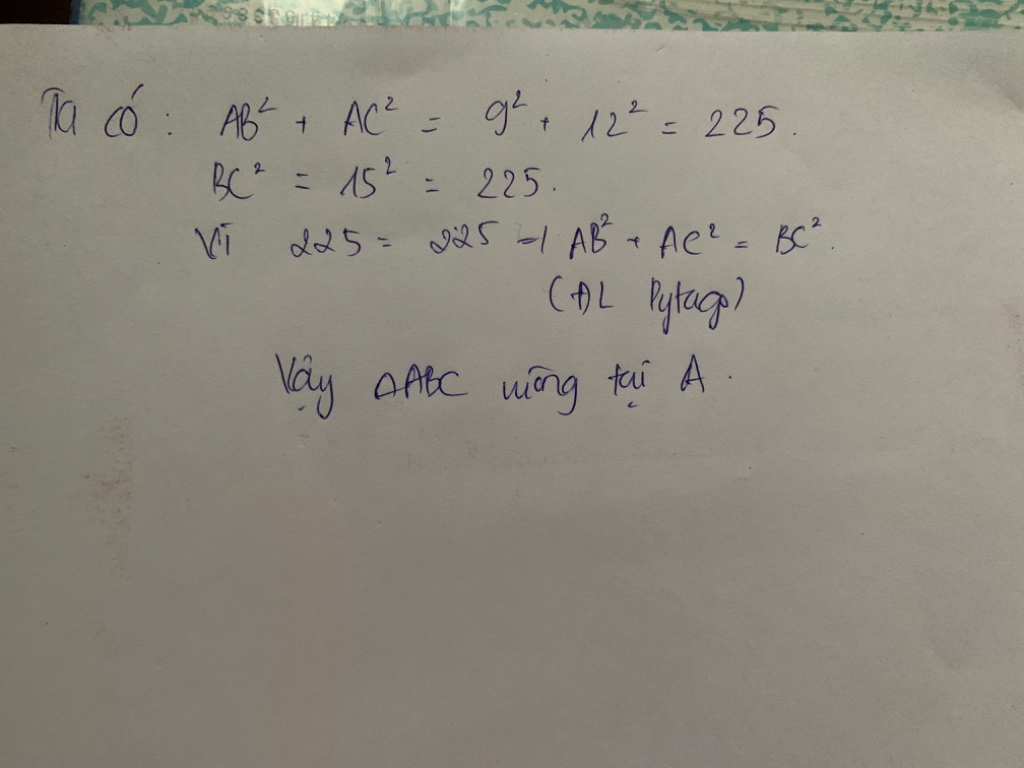 Ta có : AB² + AC² = 9² + 12² = 225.
BC² = 15² = 225.
Vì 225 = 225 ⇒ AB² + AC² = BC².
(ĐL Pytago)
Vậy △ABC vuông tại A.